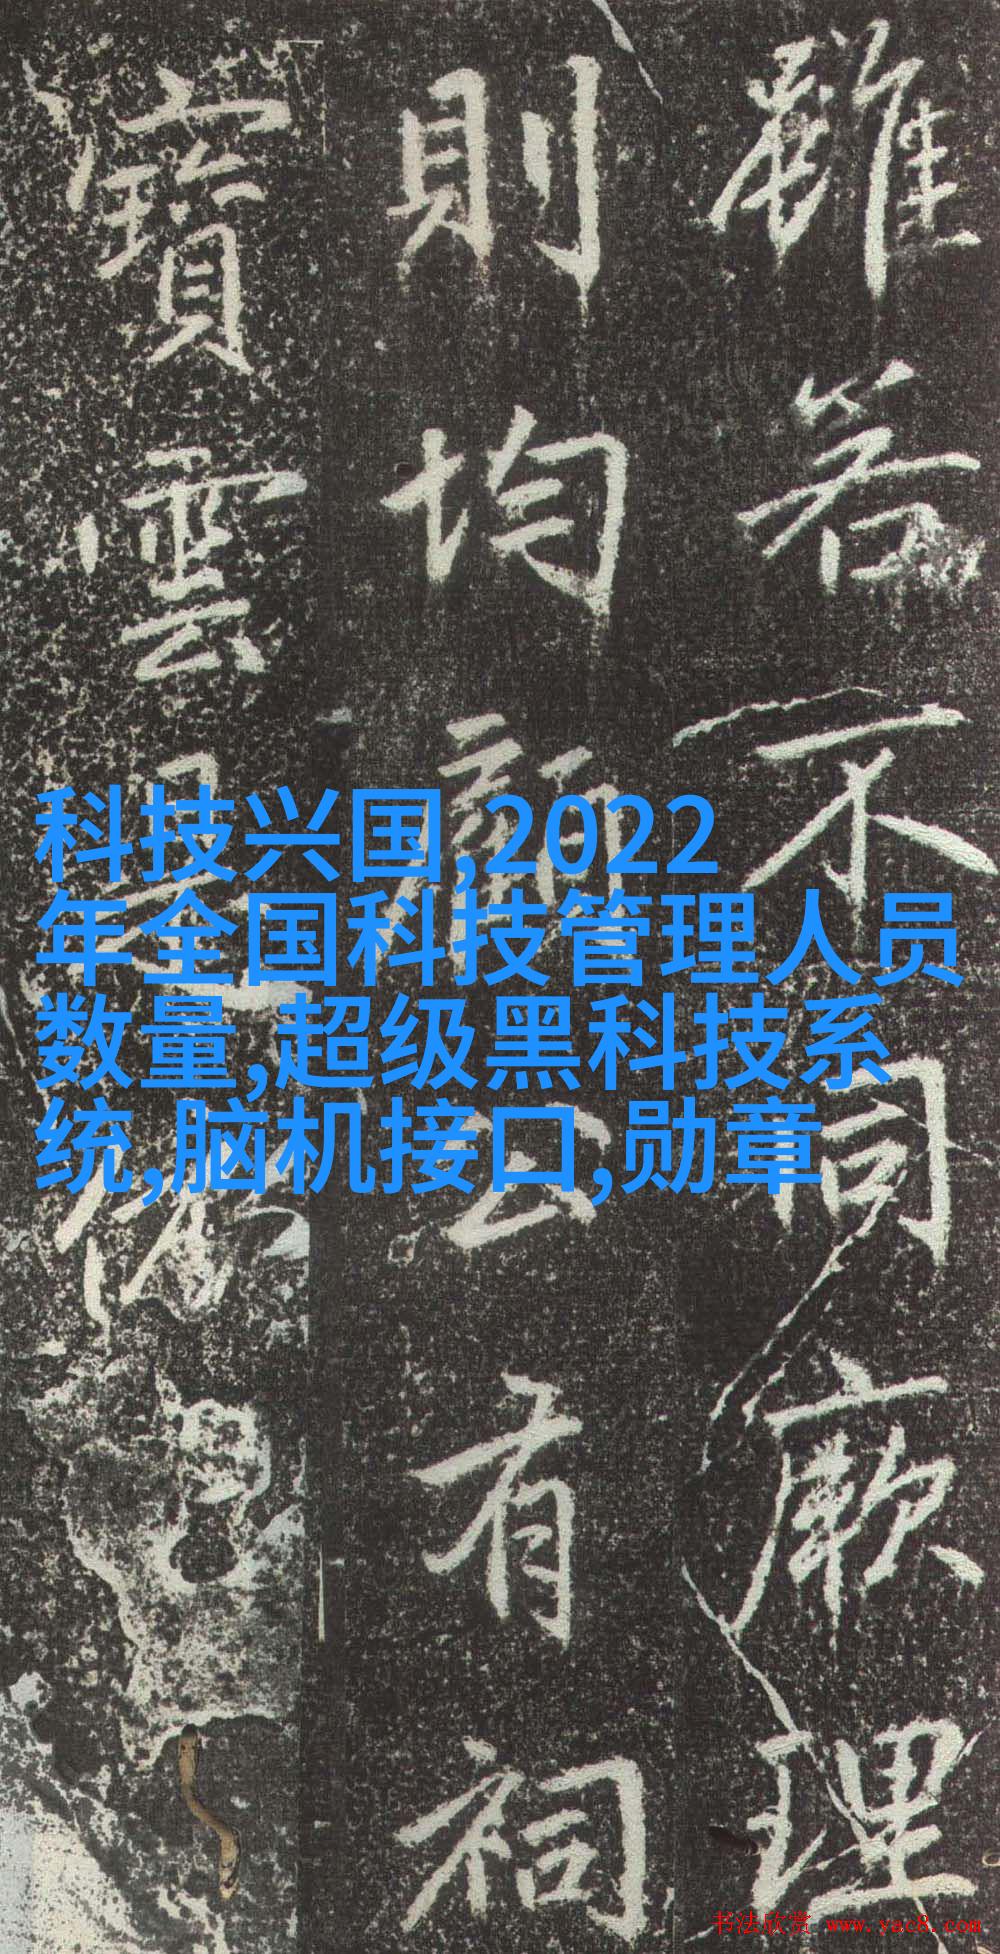 雖若不同厥理
則均顧公有祠
寶雲是
科技兴国,2022
年全国科技管理人员
数量,超级黑科技系
统,脑机接口,勋章
书法欣赏 www.yac8.com